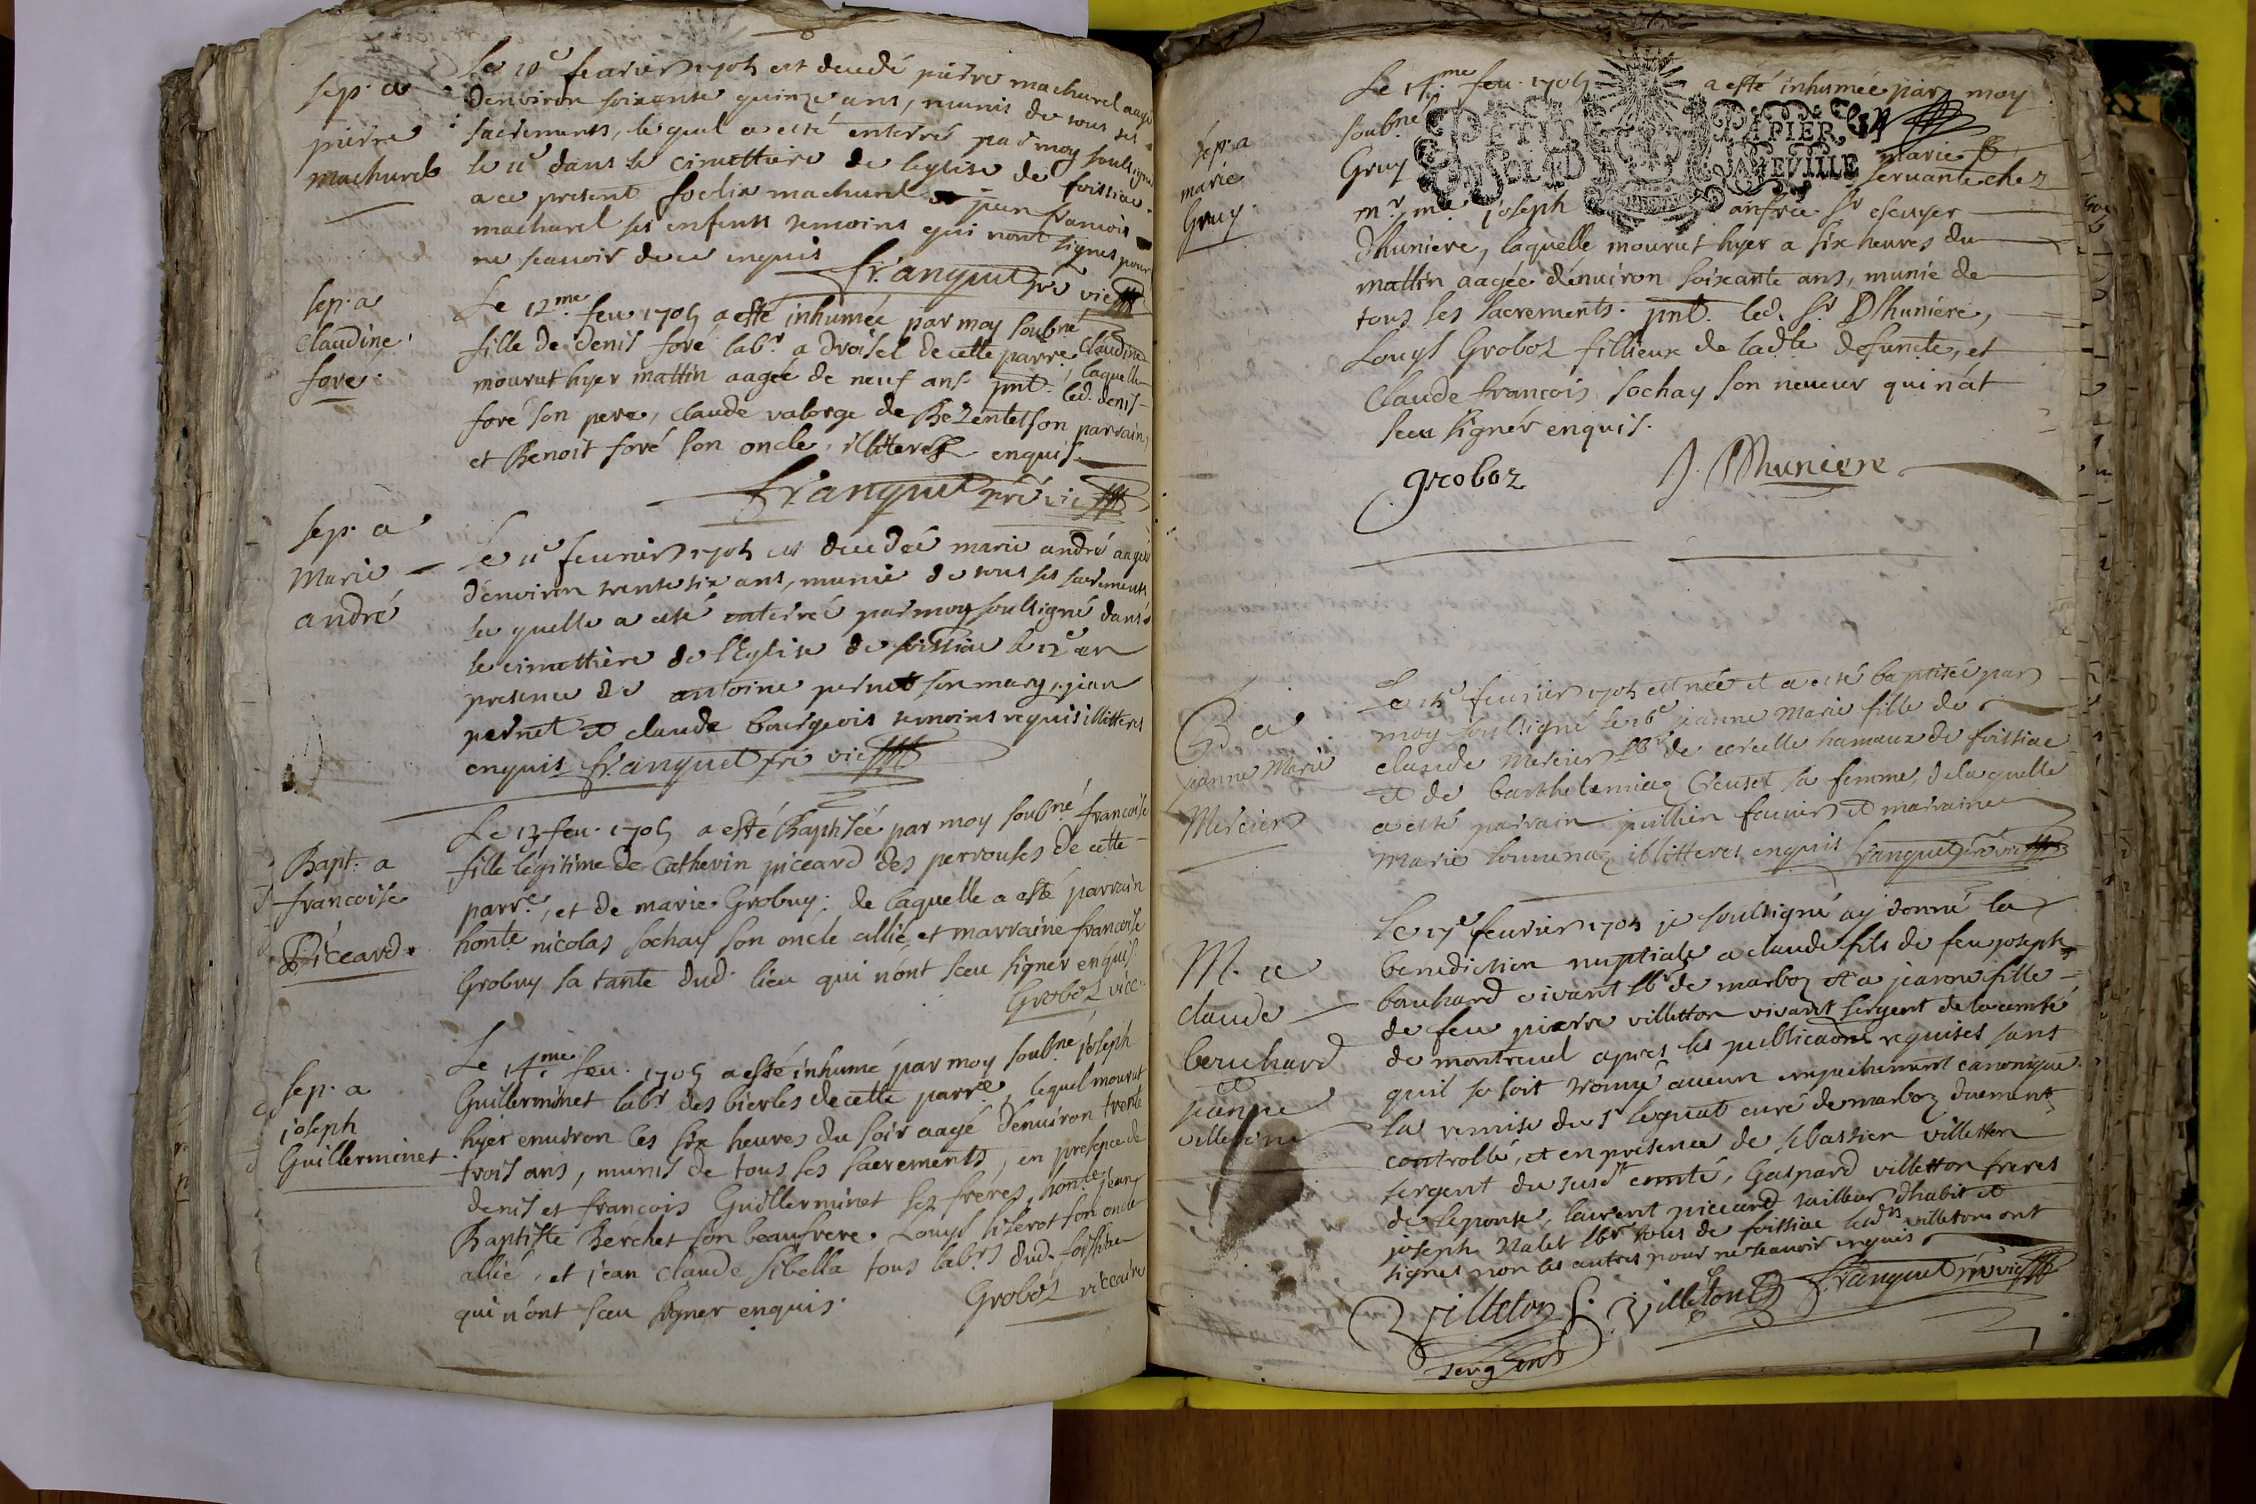 sep. a
pierre
machurel
Le 10e feurier 1705 est decedé pierre machurel aagé
denviron soixante quinze ans, munis de tous ses
sacrements, le quel a esté enterré par moy soulsigné
le 11e dans le cimettiere de leglise de foissiac
a ce present machurel jean francois
machurel ses enfents temoins qui nont signes pour
ne scauoir de ce enquis
franquet pre vic
sep. a
Claudine
foré.
Le 12me feu. 1705 a esté inhumée par moy soubné Claudine
fille de Denis foré labr a Droisel de cette parre, laquelle
mourut hyer mattin aagée de neuf ans. pnt. led. denis
foré son pere, claude valorge de son parrain,
et Benoit foré son oncle, illitterez enquis.
franquet pre vic
sep. a
Marie
andré
Le 11e feurier 1705 est decedée marie andré aagée
denviron trente six ans, munie de tous ses sacrements
la quelle a esté enterrée par moy soulsigné dans
le cimettière de l'Eglise de foissiac le 12e en
presence de antoine pernet son mary, jean
pernet et claude bourgeois temoins requis illitteres
enquis franquet pre vic
Bapt. a
francoise
Piccard.
Le 13 feu. 1705 a esté Baptisée par moy soubné francoise
fille légitime de Cathevin piccard des perrouses de cette
parre, et de marie Grobuy: de laquelle a esté parrain
honte nicolas sochay son oncle allié, et marraine francoise
Grobuy sa tante dud. lieu qui n'ont sceu signer enquis.
Groboz vicc.
sep. a
joseph
Guillerminet
Le 14me feu. 1705 a esté inhumé par moy soubné joseph
Guillerminet labr des bierles de cette parre, lequel mourut
hyer enuiron les six heures du soir aagé denuiron trente
trois ans, munis de tous ses sacrements, en presence de
denis et francois Guillerminet ses freres, honte jean
Baptiste Berchet son beaufrere, Louys lizerot son oncle
allié, et jean claude sibella tous labrs dud. foissiac
qui n'ont sceu signer enquis.
Groboz viccaire
sep. a
marie
Gruy.
Le 15me feu. 1705 a esté inhumée par moy
soubné
PETIT PAPIER
marie
Gruy servante chez
mr me joseph anfrie sr escuyer
dhuniere, laquelle mourut hyer a six heures du
mattin aagée dénuiron soixante ans, munie de
tous les sacrements. pnt. led. sr Dhuniere,
Louys Groboz fillieux de ladte defuncte, et
Claude francois sochay son neueur qui n'at
sceu signér enquis.
groboz J. Dhuniere
B. a
jeanne Marie
Mercier
Le 15e feurier 1705 est née et a esté baptisée par
moy soulsigné le 16e jeanne Marie fille de
claude Mercier lbr de corcelle hamaux de foissiac
et de barthelemiaz Creuset sa femme, de la quelle
a esté parrain jullien feurier et marraine
Marie illitteres enquis franquet pre vic
M. a
claude
bouchard
et
jeanne
villetton
Le 17e feurier 1705 je soulsigné ay donné la
benediction nuptiale a claude fils de feu joseph
bouchard vivant lbr de marboz et a jeanne fille
de feu pierre villetton vivant sergent de la comté
de montreuel apres les publications requises sans
quil se soit trouvé aucun empechement canonique
la remise du sr legrat curé de marboz duement
controllé, et en presence de sebastien villetton
sergent du susd comté, Gaspard villetton freres
de leponse, laurent piccard tailleur dhabit et
joseph Nalet lbr tous de foissiac lesds villetton ont
signes non les autres pour ne scauoir enquis
villeton S. villeton G franquet pre vic
sergent